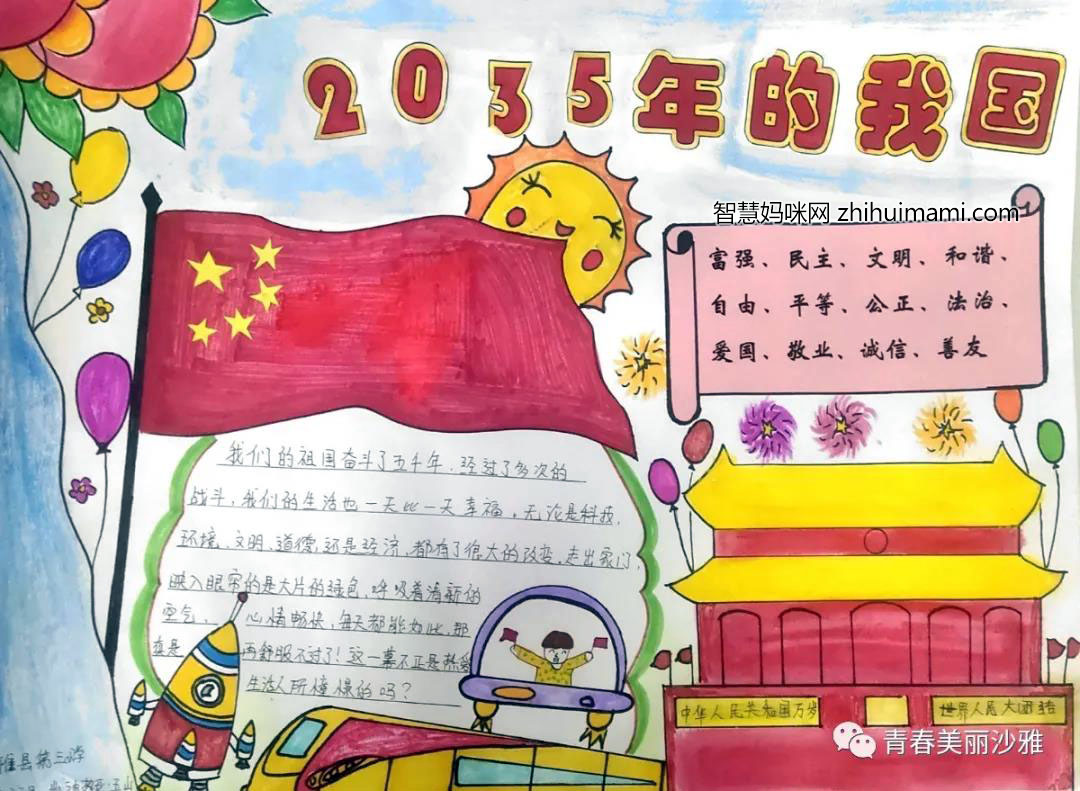 2035年的我国
智慧妈咪网 zhihuimami.com
富强、民主、文明、和谐、
自由、平等、公正、法治、
爱国、敬业、诚信、善友
我们的祖国奋斗了五千年.经过了多次的
战斗,我们的生活也一天比一天幸福。无论是科技,
环境、文明、道德,还是经济,都有了很大的改变,走出家门,
映入眼帘的是大片的绿色,呼吸着清新的
空气, 心情畅快,每天都能如此,那
真是 再舒服不过了!这一幕不正是热爱
生活人所憧憬的吗?
中华人民共和国万岁
世界人民大团结
县第三小学
青春美丽沙雅